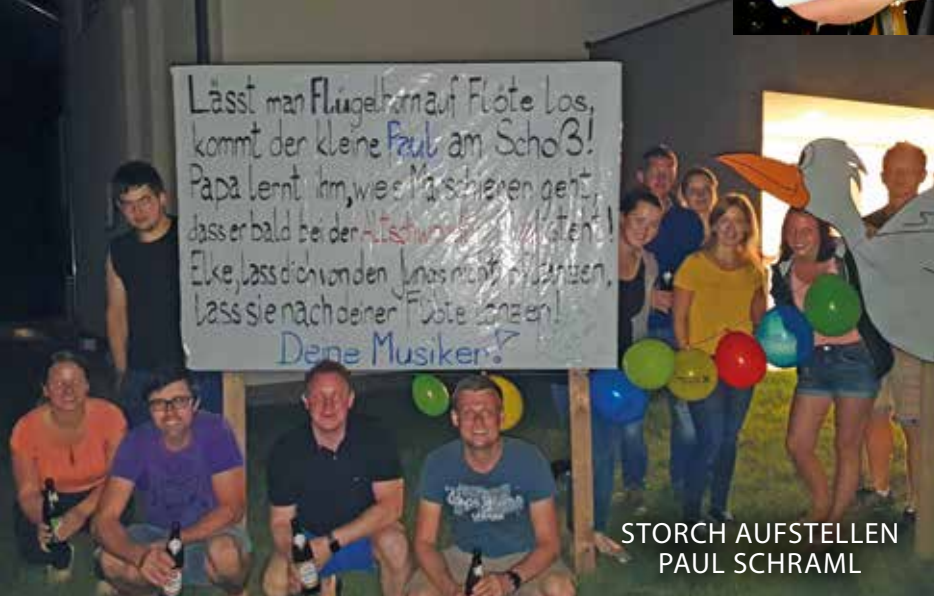 Lässt man Flügelhorn auf Flöte los,
kommt der kleine Paul am Schoß!
Papa lernt ihm, wie's Marschieren geht,
dass er bald bei der steht!
Elke, lass dich von den Jungs nicht pflanzen,
Lass sie nach deiner Flöte tanzen!
Deine Musiker!
STORCH AUFSTELLEN
PAUL SCHRAML